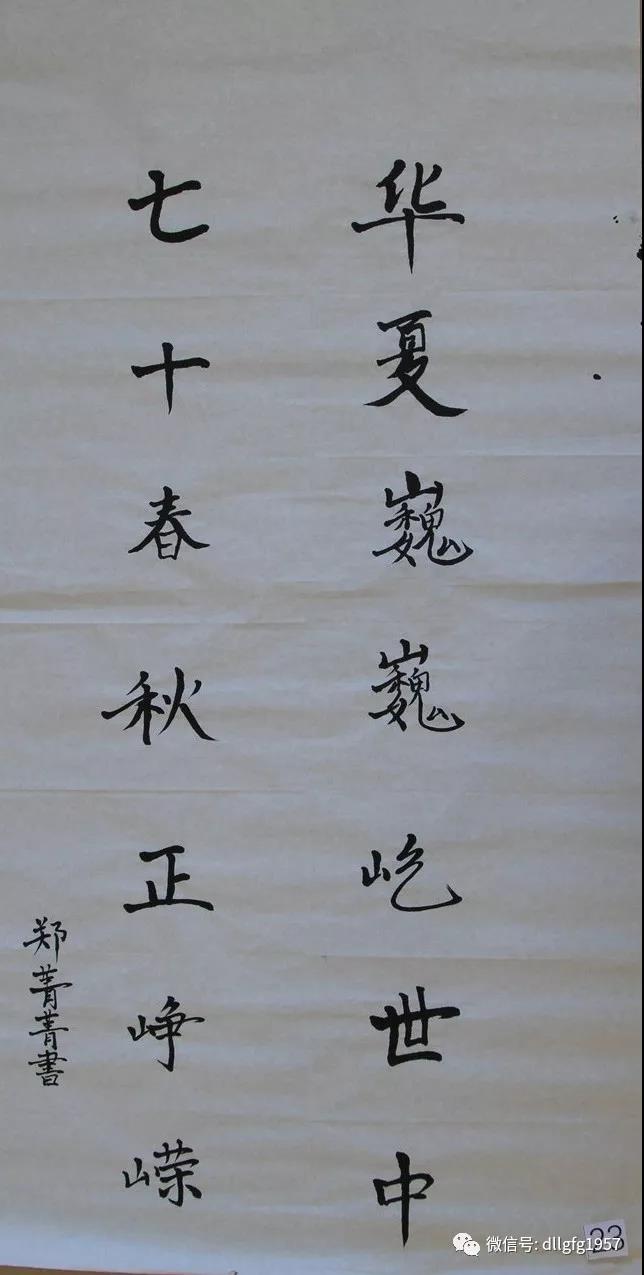 华夏巍巍屹世中
七十春秋正峥嵘
郑菁菁書
23
微信号: dllgfg1957